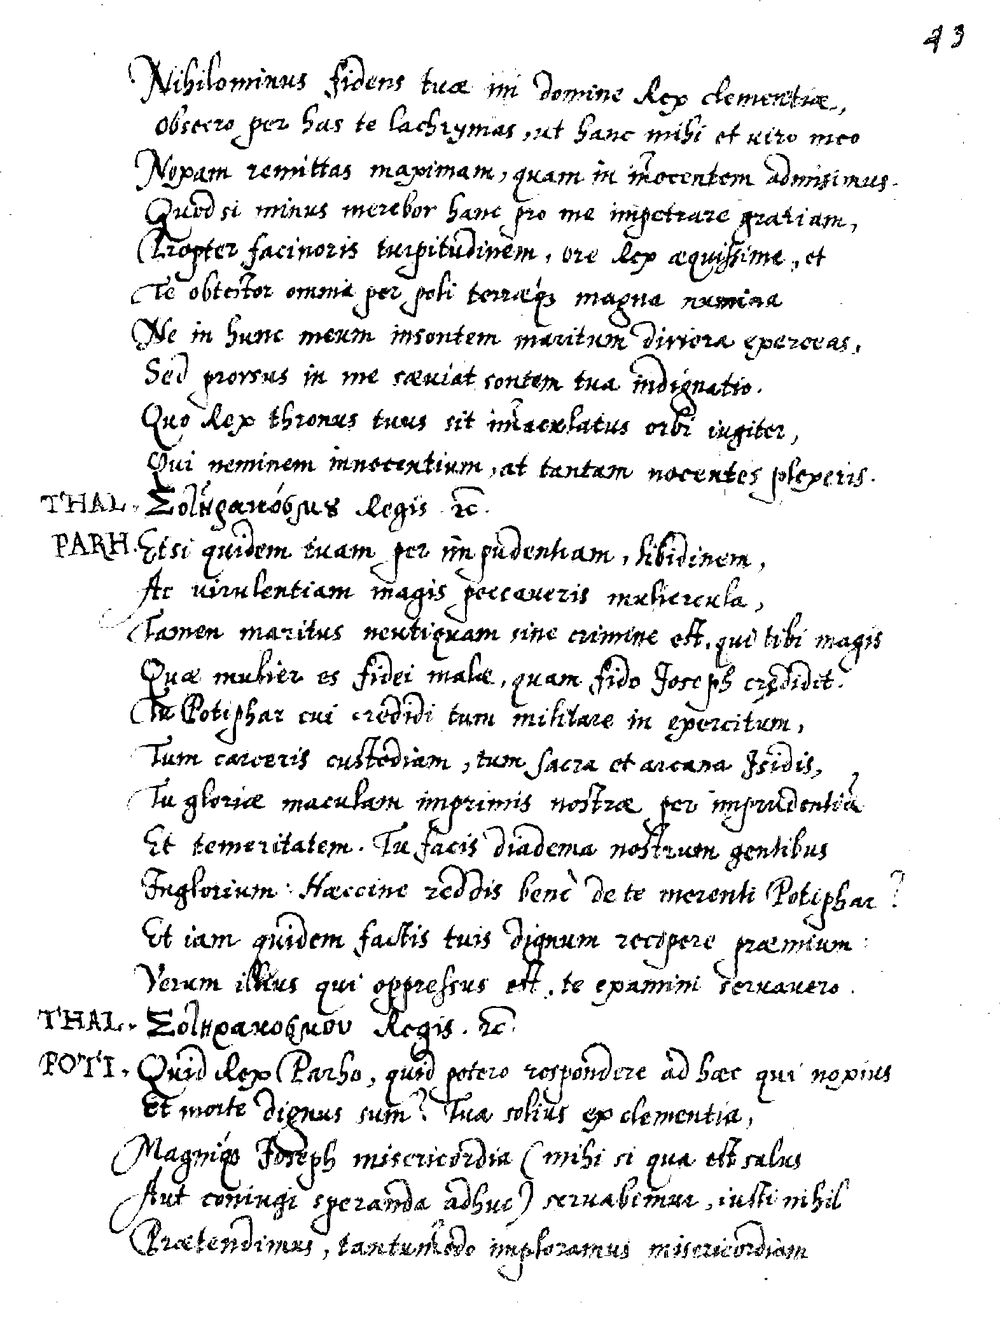 43
Nihilominus fidens tuæ mi domine Rex clementiæ,
Obsecro per has te lachrymas, ut hanc mihi et viro meo
Noxam remittas maximam, quam in in̄ocentem admisimus.
Quod si minus merebor hanc pro me impetrare gratiam,
Propter facinoris turpitudinem, ore Rex æquissime, et
Te obtestor omnia per poli terræq̃ magna numina
Ne in hunc meum insontem maritum diriora exerceas,
Sed prorsus in me sæviat sontem tua indignatio.
Quo Rex thronus tuus sit im̄aculatus orbi iugiter,
Qui neminem innocentium, at tantam nocentes plexeris.
THAL. Regis ꝛc.
PARH. Etsi quidem tuam per impudentiam, libidinem,
Ac virulentiam magis peccaveris muliercula,
Tamen maritus neutiquam sine crimine est, qui tibi magis
Quæ mulier es fidei malæ, quam fido Joseph crędidit.
Tu Potiphar cui credidi tum militare in exercitum,
Tum carceris custodiam, tum sacra et arcana Isidis,
Tu gloriæ maculam imprimis nostræ per imprudentiā
Et temeritatem. Tu facis diadema nostrum gentibus
Inglorium: Hæccine reddis benè de te merenti Potiphar?
Et iam quidem factis tuis dignum recipere præmium:
Verum illius qui oppressus est, te examini servavero.
THAL. Σοληρακόσμου Regis. ꝛc.
POTI. Quid Rex Parho, quid potero respondere ad hæc qui noxius
Et morte dignus sum? Tua solius ex clementia,
Magniq̃ Joseph misericordia (mihi si qua est salus
Aut coniugi speranda adhuc) servabimur, iusti nihil
Prætendimus, tantum̄odo imploramus misericordiam